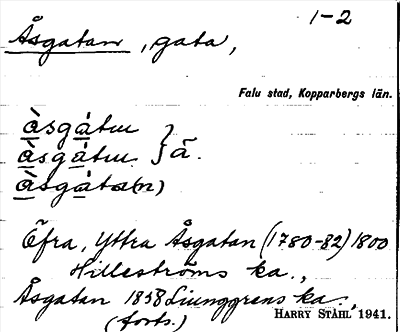 1-2
Åsgatan, gata,
Falu stad, Kopparbergs län.
àsgátan
àsgátan } ā.
àsgáta(n)
Öfra, Yttra Åsgatan (1780-82) 1800
Hilleströms ka.,
Åsgatan 1858 Ljunggrens ka.,
(forts.)
HARRY STÅHL 1941.